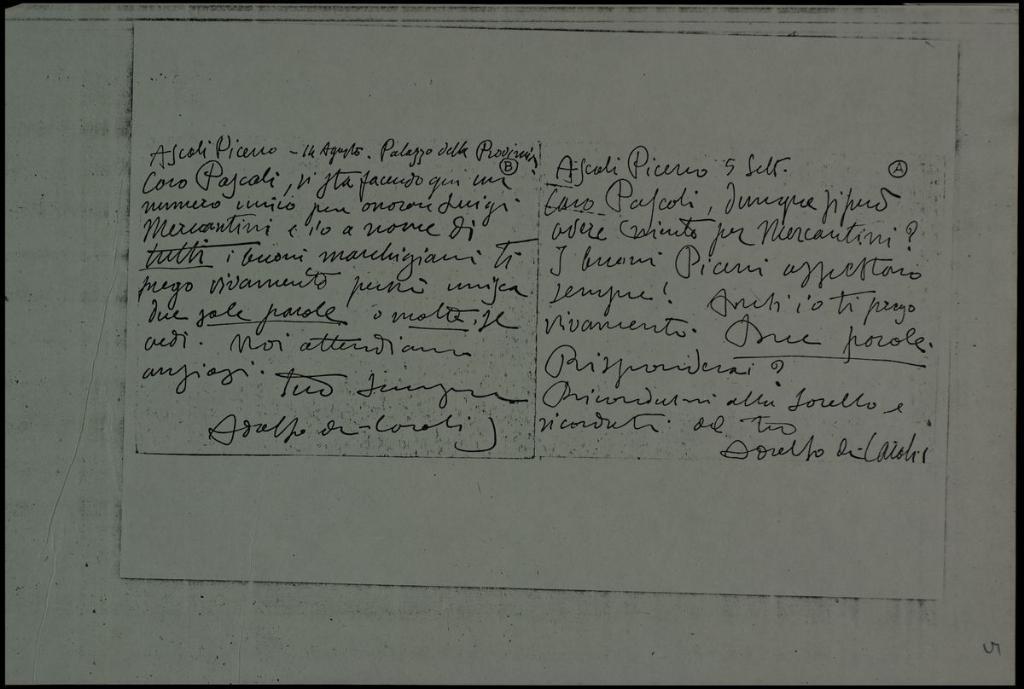 Ascoli Piceno - 14 Agosto. Palazzo della Provincia
B
Caro Pascoli, si sta facendo qui un
numero unico per onorare Luigi
Mercantini e io a nome di
tutti i buoni marchigiani ti
prego vivamente perchè unisca
due sole parole o molte, se
credi. Noi attendiamo
ansiosi.
Tuo sempre
Adolfo de Carolis
Ascoli Piceno 5 Sett.
A
Caro Pascoli, dunque si può
avere per Mercantini?
I buoni Piceni aspettano
sempre! Anch'io ti prego
vivamente. Due parole.
Risponderai?
Ricordami alla sorella e
ricordati del tuo
Adolfo de Carolis
5